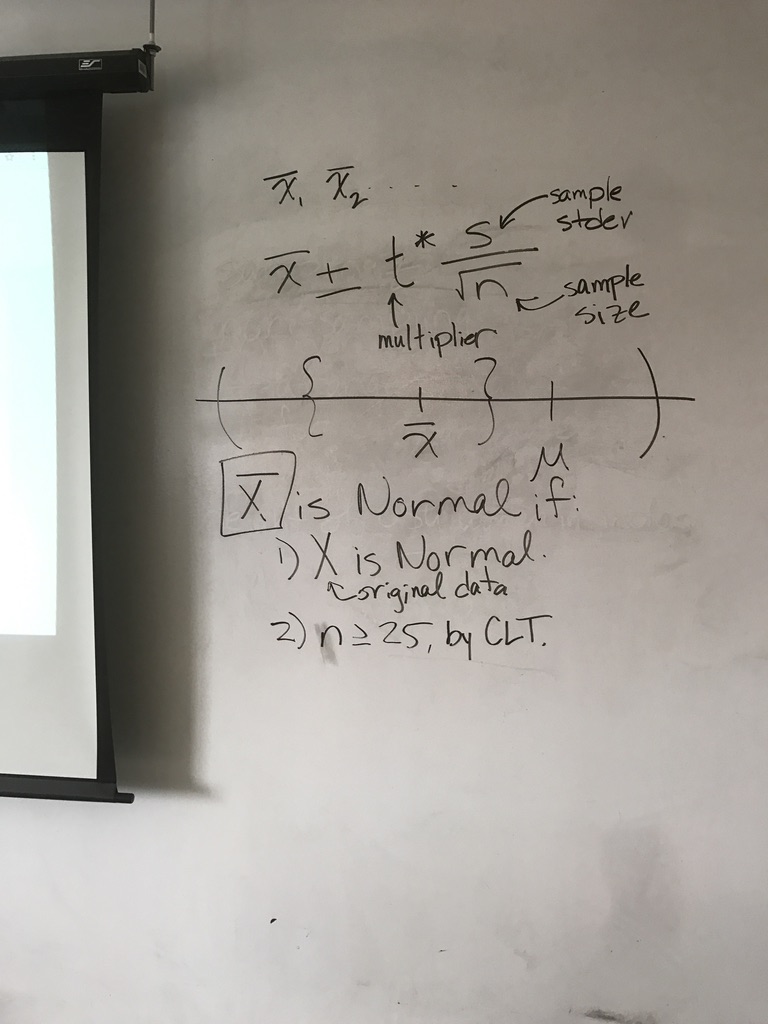 x̄₁ x̄₂ . . . .
x̄ ± t* s/√n
sample stdev
sample size
multiplier
( { x̄ } μ )
X̄ is Normal if:
1) X is Normal.
original data
2) n ≥ 25, by CLT.